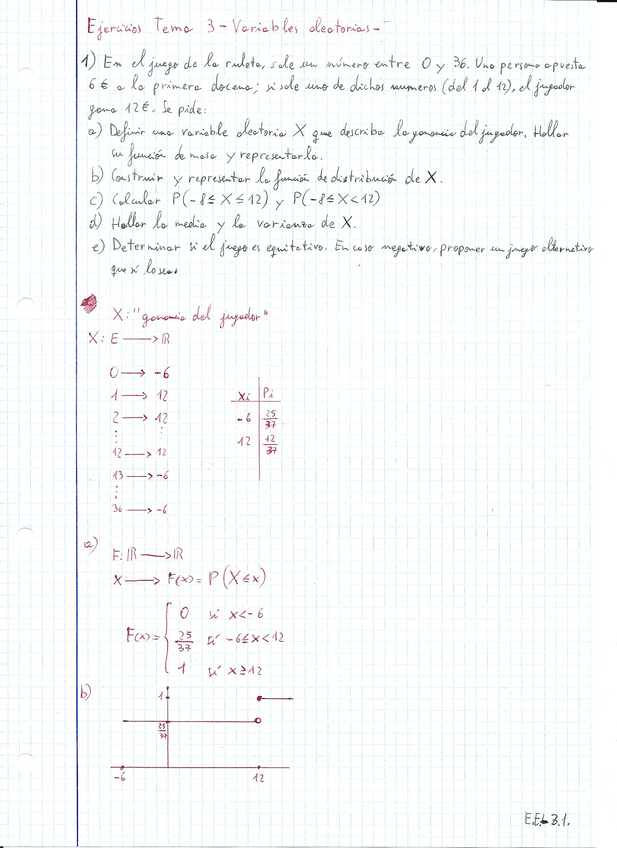 Ejercicios Tema 3 - Variables aleatorias -
1) En el juego de la ruleta, sale un número entre 0 y 36. Una persona apuesta
6€ a la primera docena; si sale uno de dichos numeros (del 1 al 12), el jugador
gana 12€. Se pide:
a) Definir una variable aleatoria X que describa la ganancia del jugador. Hallar
su función de masa y representarla.
b) Construir y representar la función de distribución de X.
c) Calcular P(-8 ≤ X ≤ 12) y P(-8 ≤ X < 12)
d) Hallar la media y la varianza de X.
e) Determinar si el juego es equitativo. En caso negativo, proponer un juego alternativo
que sí lo sea.
X: "ganancia del jugador"
X: E → ℝ
0 → -6
1 → 12
2 → 12
⋮ ⋮
12 → 12
13 → -6
⋮
36 → -6
Xi Pi
-6 25/37
12 12/37
a)
F: ℝ → ℝ
X → F(x) = P(X ≤ x)
F(x) = { 0 si x < -6
25/37 si -6 ≤ x < 12
1 si x ≥ 12
b)
1
25/37
-6 12
3.1.